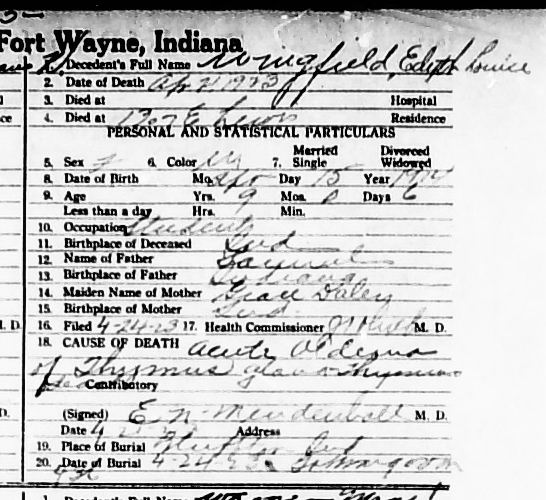 Fort Wayne, Indiana
1. Decedent's Full Name Wingfield, Edyth Louise
2. Date of Death Apr 21 1923
3. Died at Hospital
4. Died at E Lewis Residence
PERSONAL AND STATISTICAL PARTICULARS
Married Divorced
5. Sex F 6. Color W 7. Single Widowed
8. Date of Birth Mo. Apr Day 15 Year 1914
9. Age Yrs. 9 Mos. 0 Days 6
Less than a day Hrs. Min.
10. Occupation Student
11. Birthplace of Deceased Ind
12. Name of Father Samuel
13. Birthplace of Father Indiana
14. Maiden Name of Mother Grace Daley
15. Birthplace of Mother Ind
16. Filed 4-24-23 17. Health Commissioner M. D.
18. CAUSE OF DEATH acute Oedema
of Thymus gland Thymus
Contributory
(Signed) E. N. Mendenhall M. D.
Date 4 Address
19. Place of Burial Ind
20. Date of Burial 4-24-23